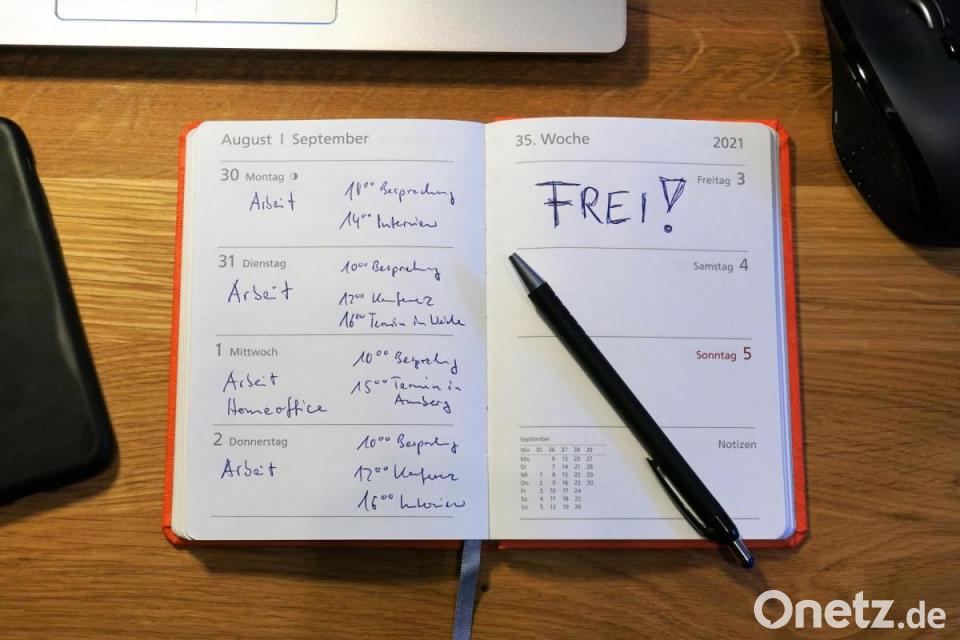 August | September
30 Montag
Arbeit
Besprechung
14⁰⁰ Interview
31 Dienstag
Arbeit
10⁰⁰ Besprechung
12⁰⁰ Konferenz
16⁰⁰ Termin in
1 Mittwoch
Arbeit
Homeoffice
10⁰⁰ Besprechung
15⁰⁰ Termin in
Amberg
2 Donnerstag
Arbeit
10⁰⁰ Besprechung
12⁰⁰ Konferenz
16⁰⁰ Interview
35. Woche 2021
Freitag 3
FREI!
Samstag 4
Sonntag 5
Notizen
September
Wo 35 36 37 38 39
Mo 6 13 20 27
Di 7 14 21 28
Mi 1 8 15 22 29
Do 2 9 16 23 30
Fr 3 10 17 24
Sa 4 11 18 25
So 5 12 19 26
Onetz.de